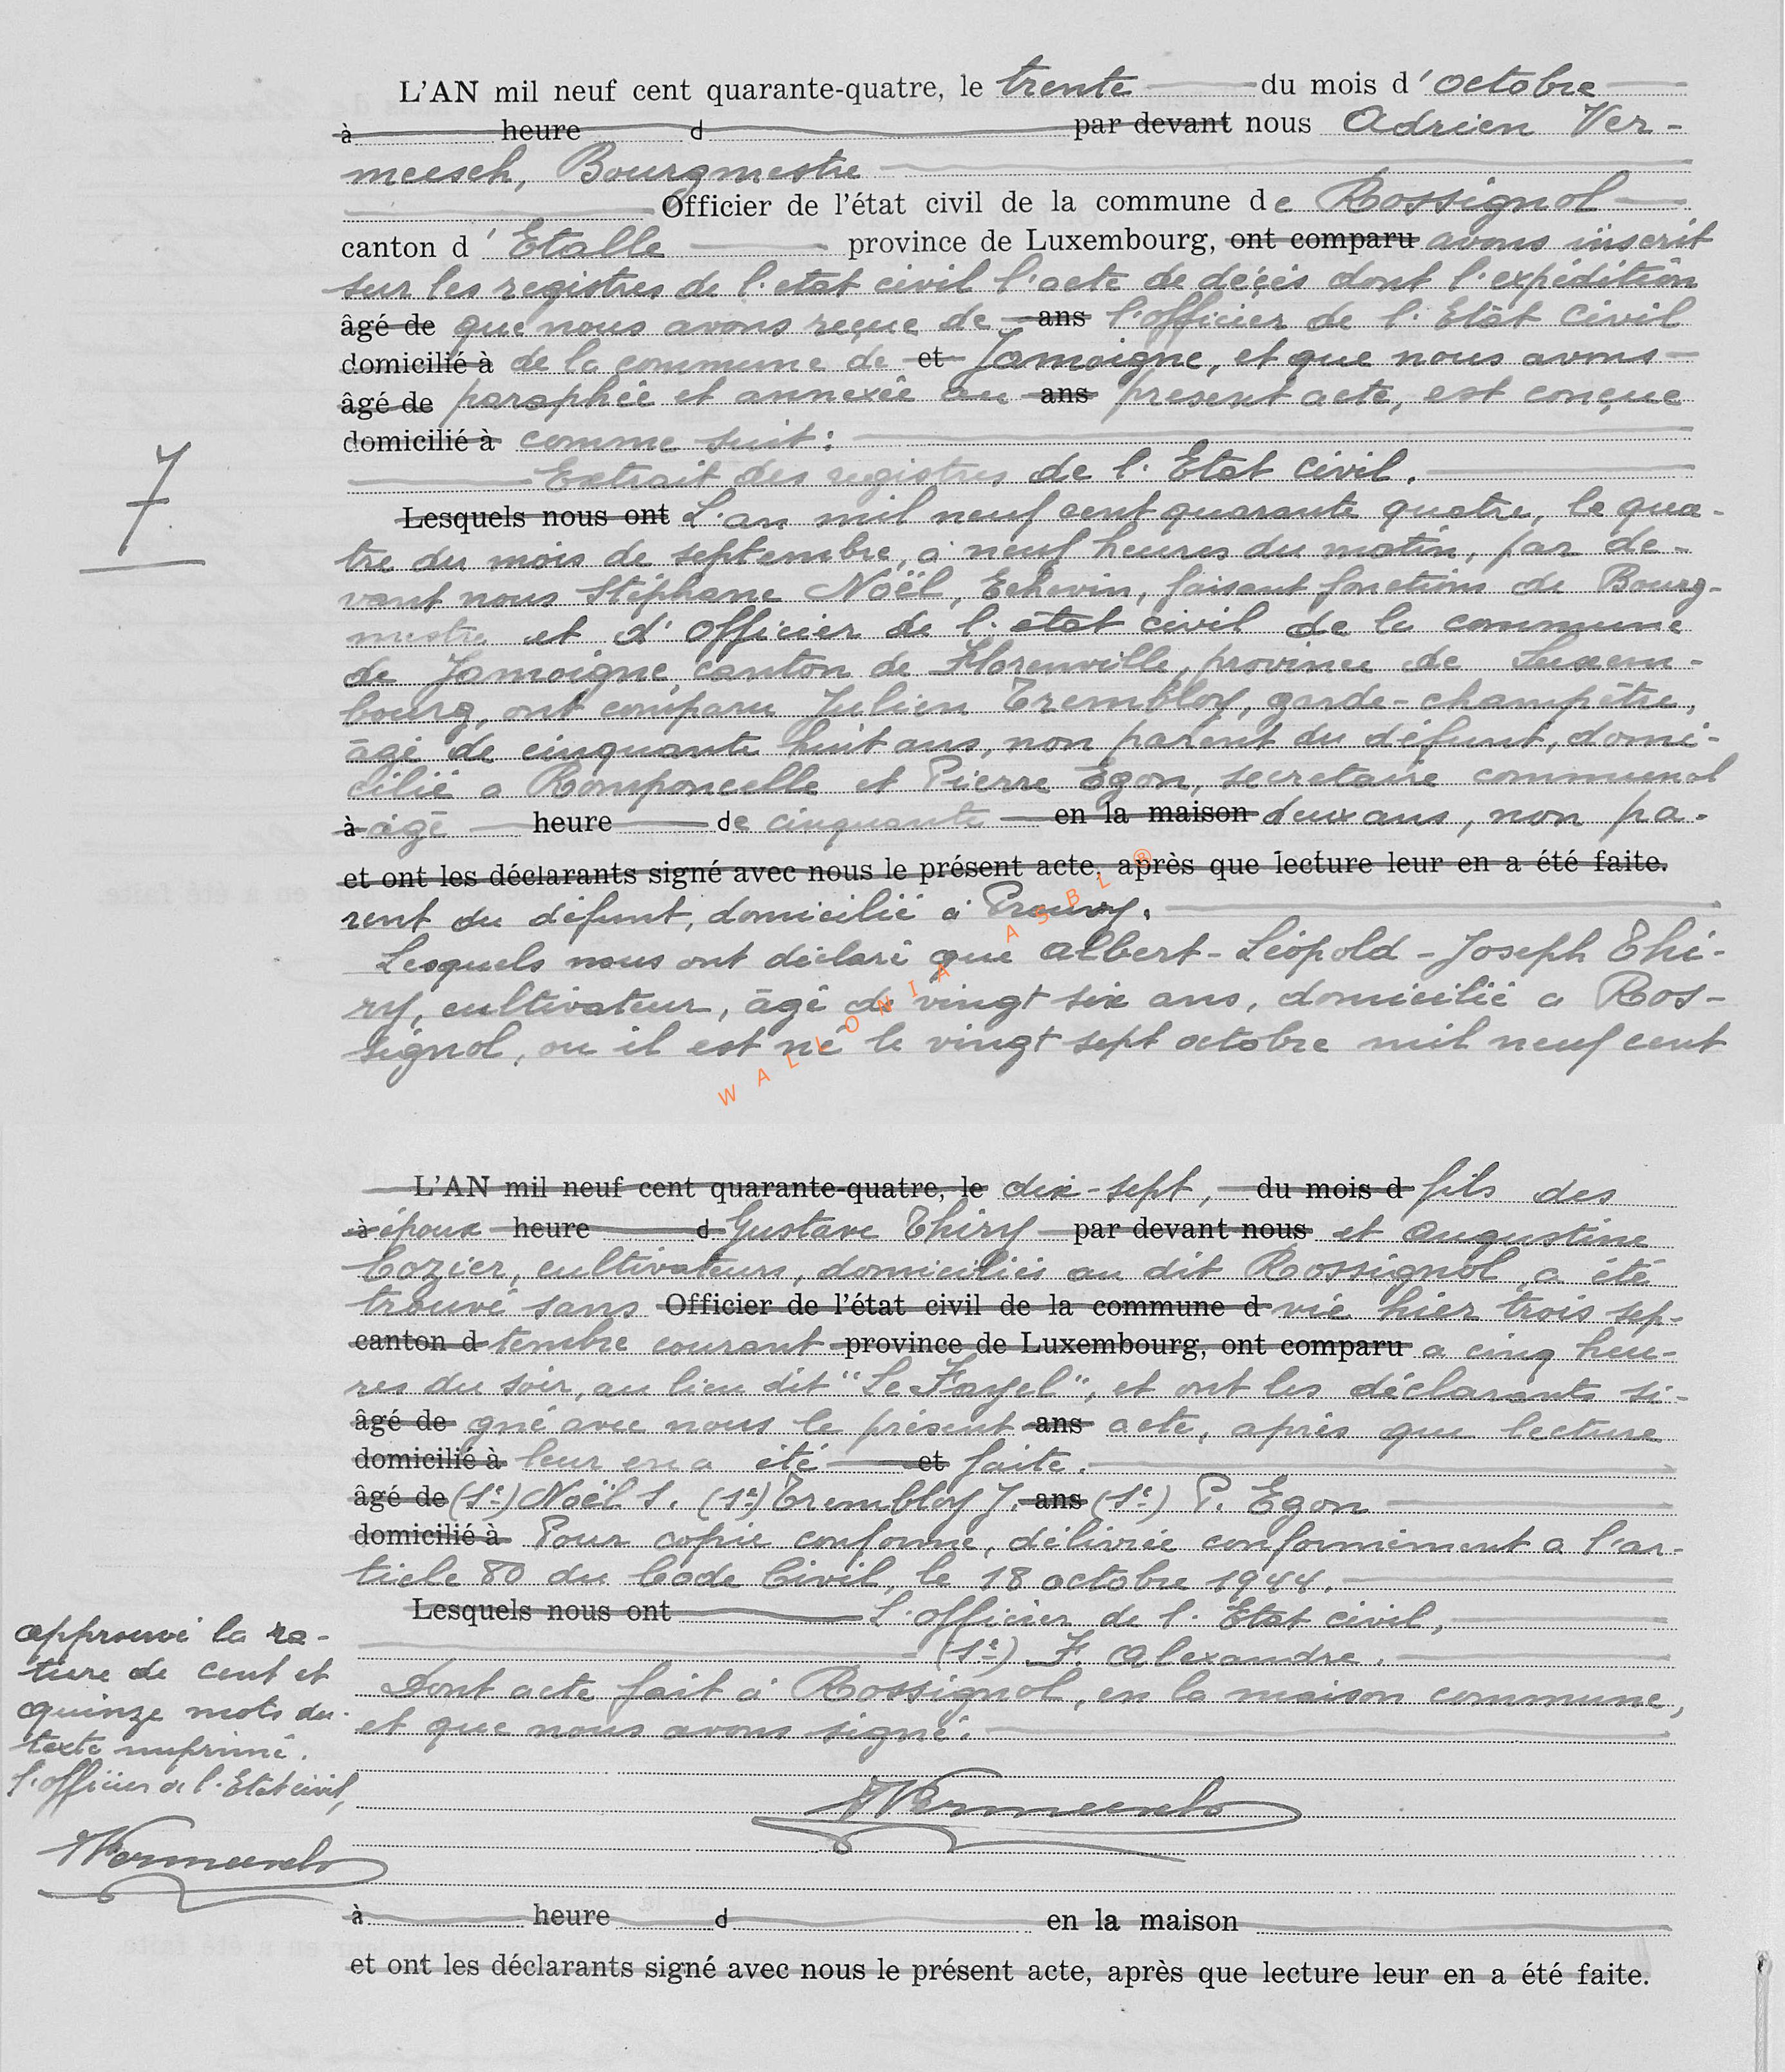 L'AN mil neuf cent quarante-quatre, le trente du mois d'octobre
à heure d par devant nous Adrien Ver-
meesch, Bourgmestre
Officier de l'état civil de la commune de Rossignol
canton d'Etalle province de Luxembourg, ont comparu avons inscrit
sur les registres de l'etat civil l'acte de décès dont l'expédition
âgé de que nous avons reçue de ans l'officier de l'Etat Civil
domicilié à de la commune de et Jamoigne, et que nous avons
âgé de paraphée et annexée au ans présent acte, est conçue
domicilié à comme suit :
7
Extrait des registres de l'Etat Civil.
Lesquels nous ont L'an mil neuf cent quarante quatre, le qua-
tre du mois de septembre, à neuf heures du matin, par de-
vant nous Stéphane Noël, Echevin, faisant fonctions de Bourg-
mestre et d'Officier de l'état civil de la commune
de Jamoigne, canton de Florenville, province de Luxem-
bourg, ont comparu Julien Trembloy, garde-champêtre,
âgé de cinquante huit ans, non parent du défunt, domi-
cilié a Romponcelle et Pierre Egon, secretaire communal
à âgé heure de cinquante en la maison deux ans, non pa-
et ont les déclarants signé avec nous le présent acte, après que lecture leur en a été faite.
rent du défunt, domicilié à Prouvy.
Lesquels nous ont déclaré que Albert-Léopold-Joseph Thi-
ry, cultivateur, âgé de vingt six ans, domicilié a Ros-
signol, ou il est né le vingt sept octobre mil neuf cent
WALLONIA ASBL ®
L'AN mil neuf cent quarante-quatre, le dix-sept, du mois d fils des
à époux heure d Gustave Thiry par devant nous et Augustine
Cozier, cultivateurs, domiciliés au dit Rossignol, a été
trouvé sans Officier de l'état civil de la commune d vie hier trois sep-
canton d tembre courant province de Luxembourg, ont comparu a cinq heu-
res du soir, au lieu dit "Le Fayel", et ont les déclarants si-
âgé de gné avec nous le présent ans acte, après que lecture
domicilié à leur en a été et faite.
âgé de (Sé) Noël S. (Sé) Trembloy J. ans (Sé) P. Egon
domicilié à Pour copie conforme, délivrée conformément a l'ar-
ticle 80 du Code Civil, le 18 octobre 1944.
Lesquels nous ont L'officier de l'Etat civil,
(Sé) F. Alexandre.
Dont acte fait à Rossignol, en la maison commune,
et que nous avons signé.
approuvé la ra-
ture de cent et
quinze mots du
texte imprimé.
l'officier de l'Etat civil,
AVermeesch
AVermeesch
à heure d en la maison
et ont les déclarants signé avec nous le présent acte, après que lecture leur en a été faite.